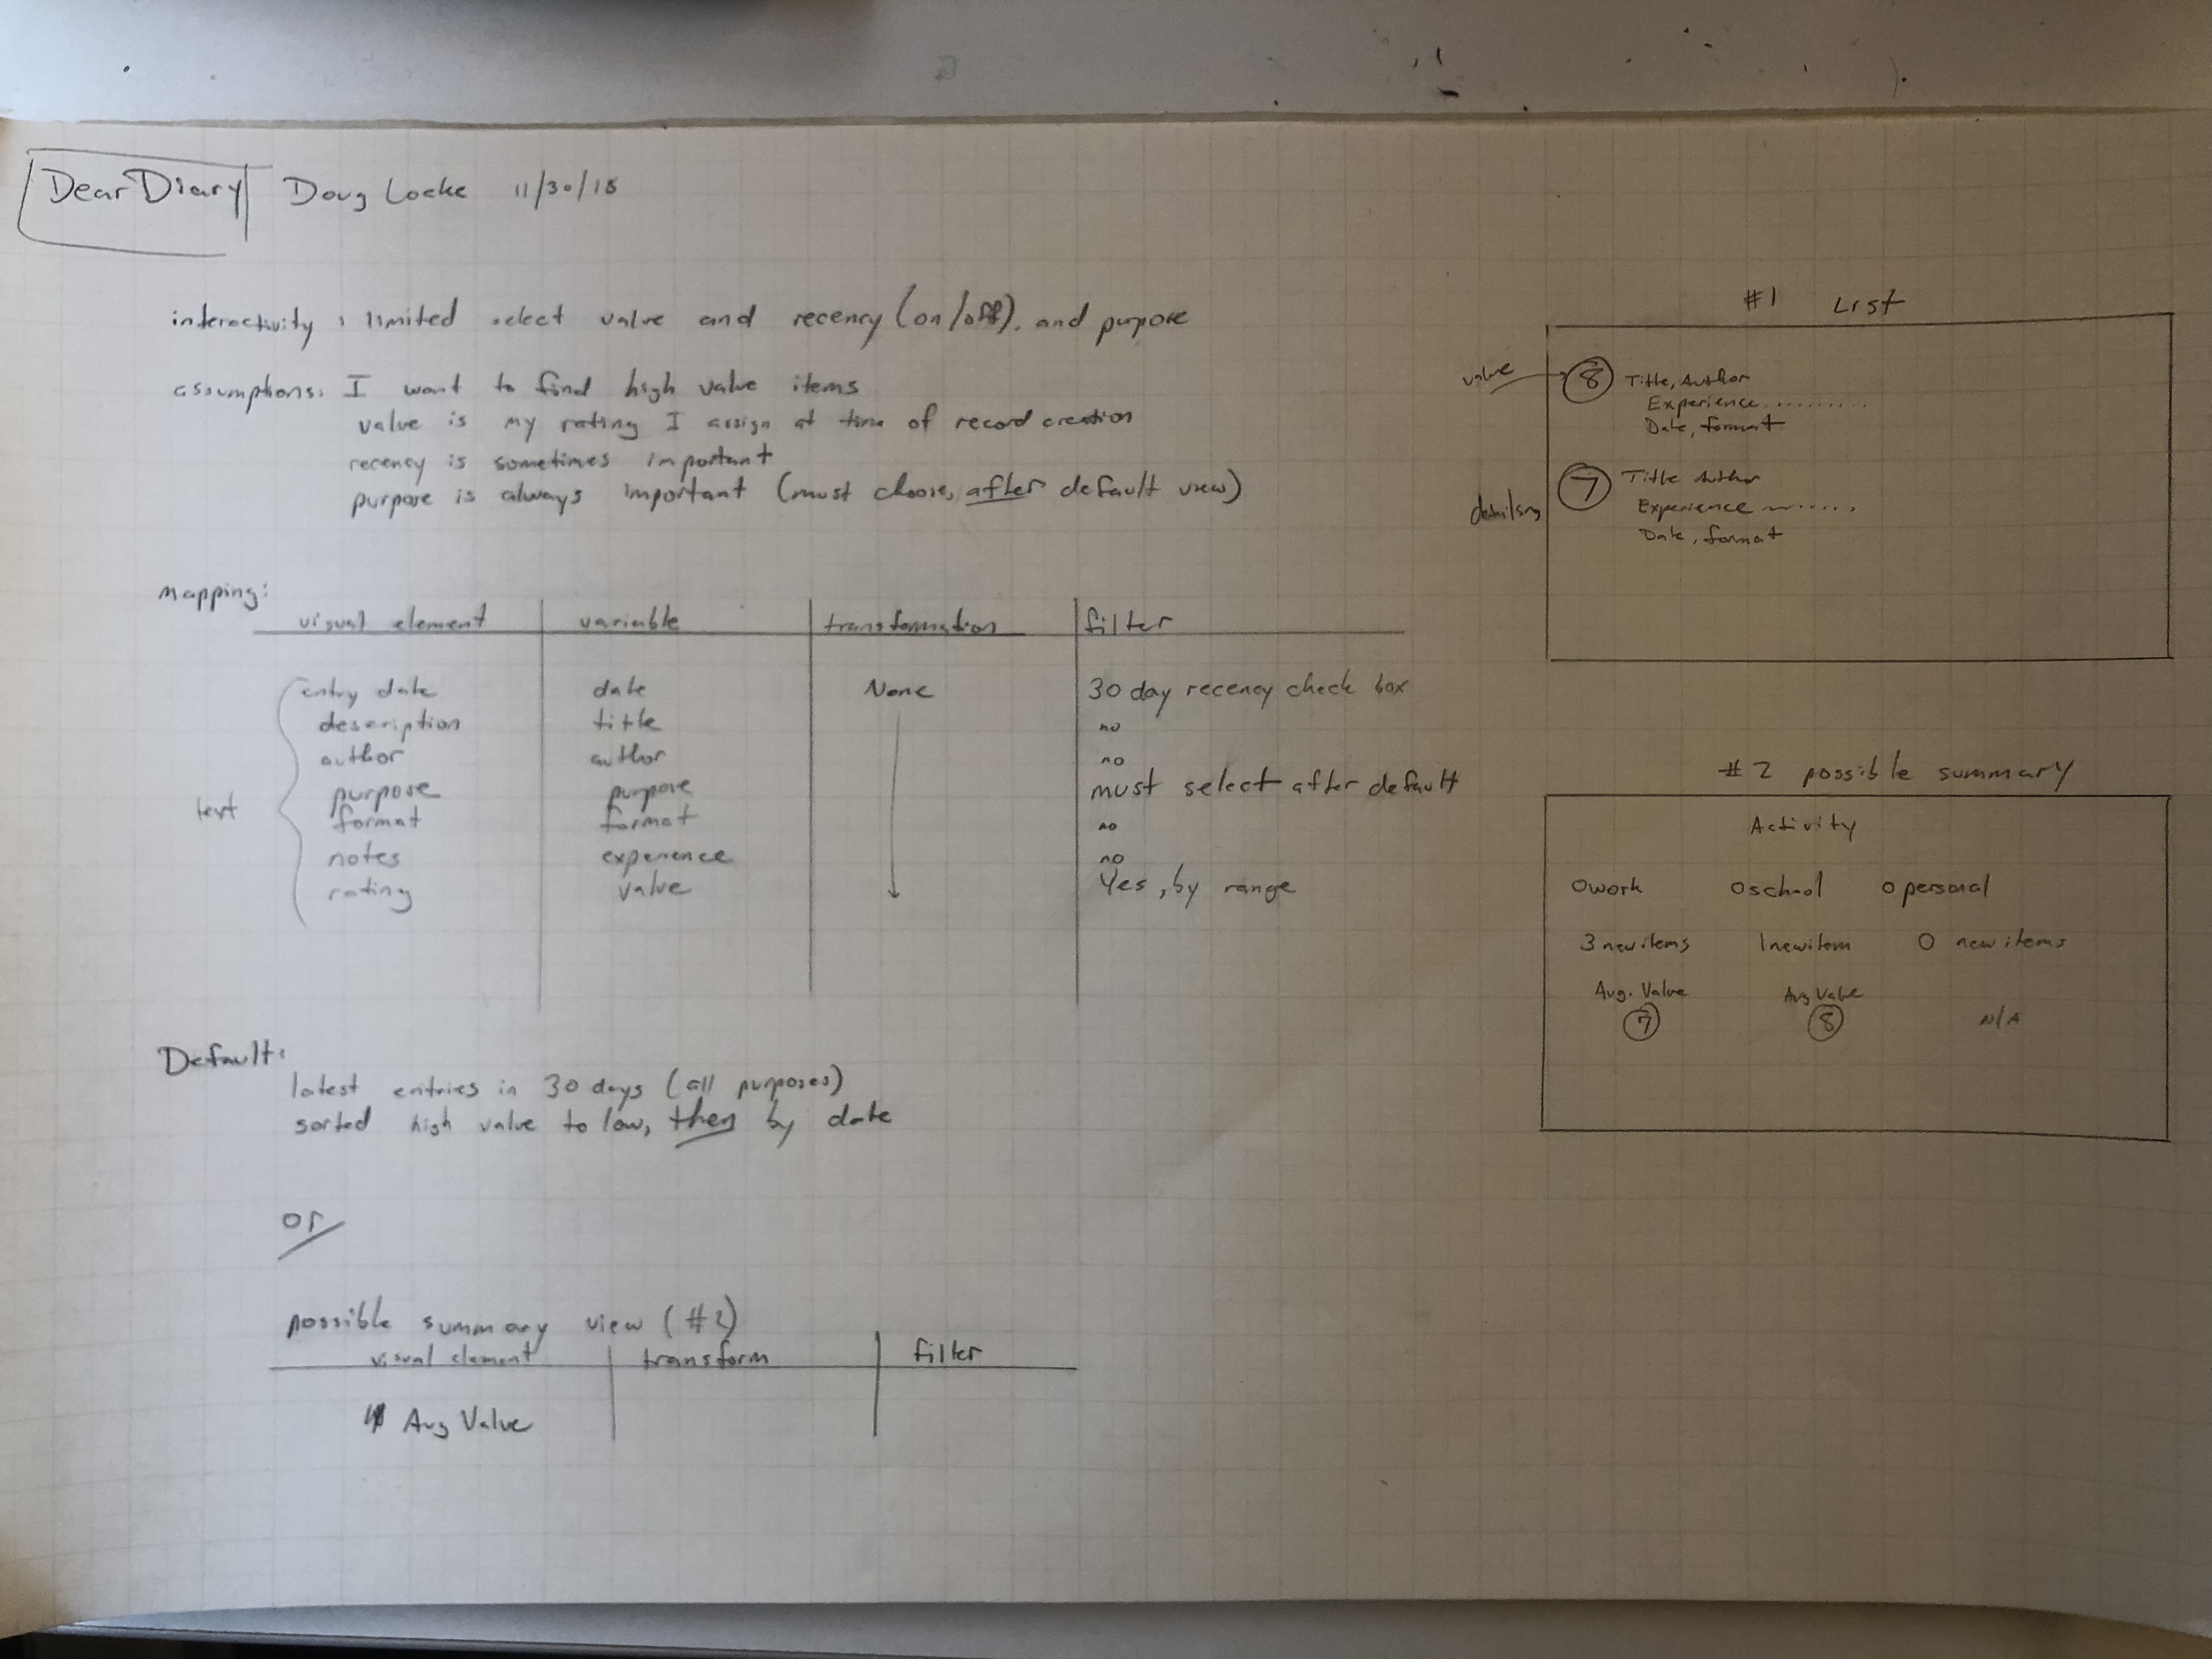 Dear Diary Doug Locke 11/30/18
interactivity: limited select value and recency (on/off), and purpose
assumptions: I want to find high value items
value is my rating I assign at time of record creation
recency is sometimes important
purpose is always important (must choose, after default view)
Mapping:
visual element variable transformation filter
entry date date None 30 day recency check box
description title no
author author no
purpose purpose must select after default
text
format format no
notes experience no
rating value Yes, by range
Default:
latest entries in 30 days (all purposes)
sorted high value to low, then by date
or
possible summary view (#2)
visual element transform filter
Avg Value
#1 List
value
8 Title, Author
Experience.........
Date, format
7 Title Author
Experience ......
Date, format
#2 possible summary
Activity
O work O school O personal
3 new items 1 new item 0 new items
Avg. Value Avg Value
7 8 N/A